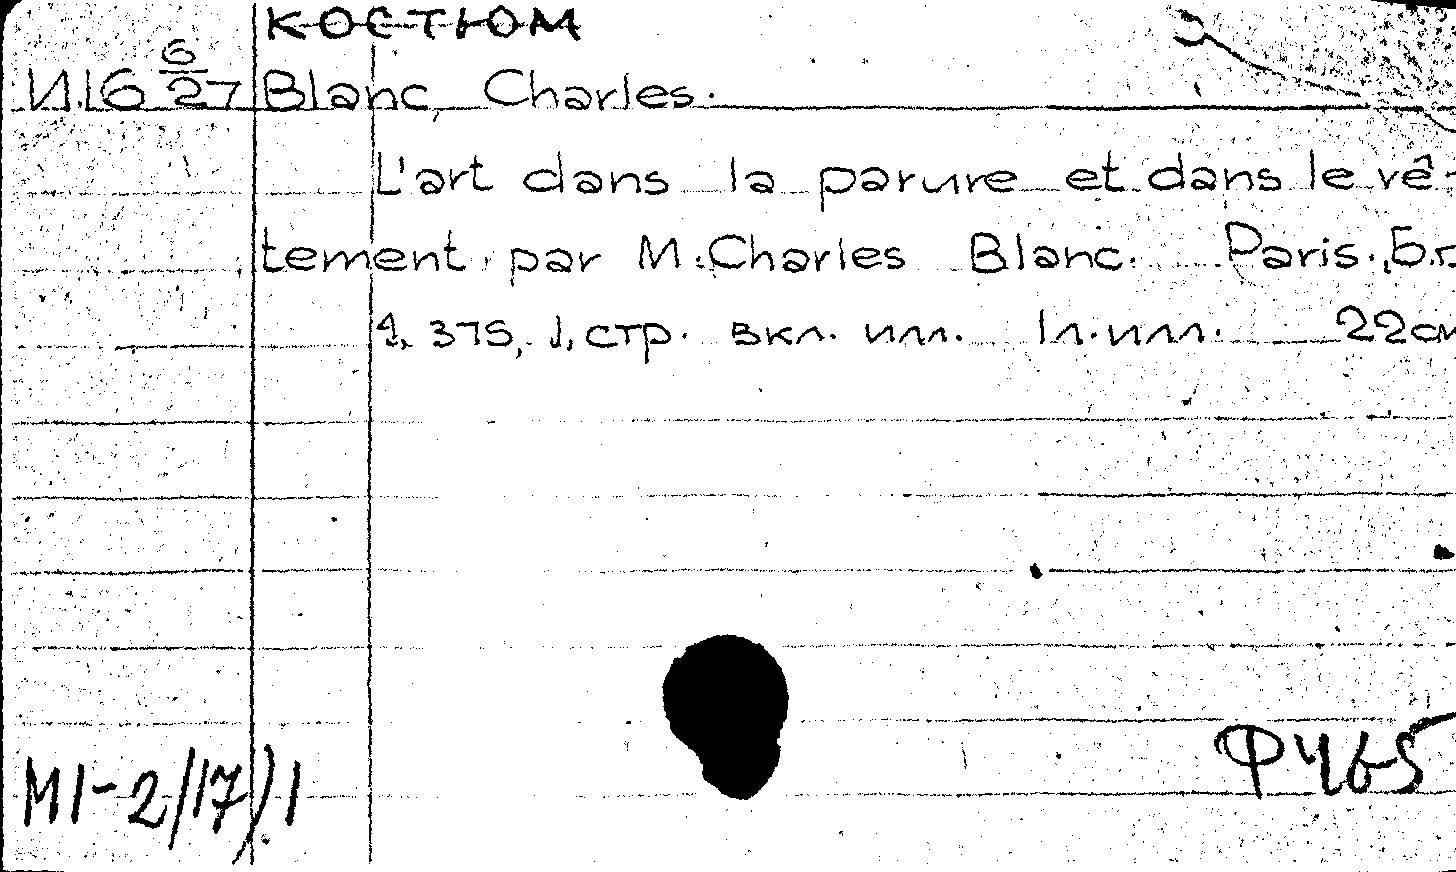 КОСТЮМ
И.16 6/27 Blanc, Charles.
L'art dans la parure et dans le vê-
tement par M. Charles Blanc. Paris., Б.г.
375, 1, стр. вкл. илл. 1 л. илл. 22см
М1-2/17)1